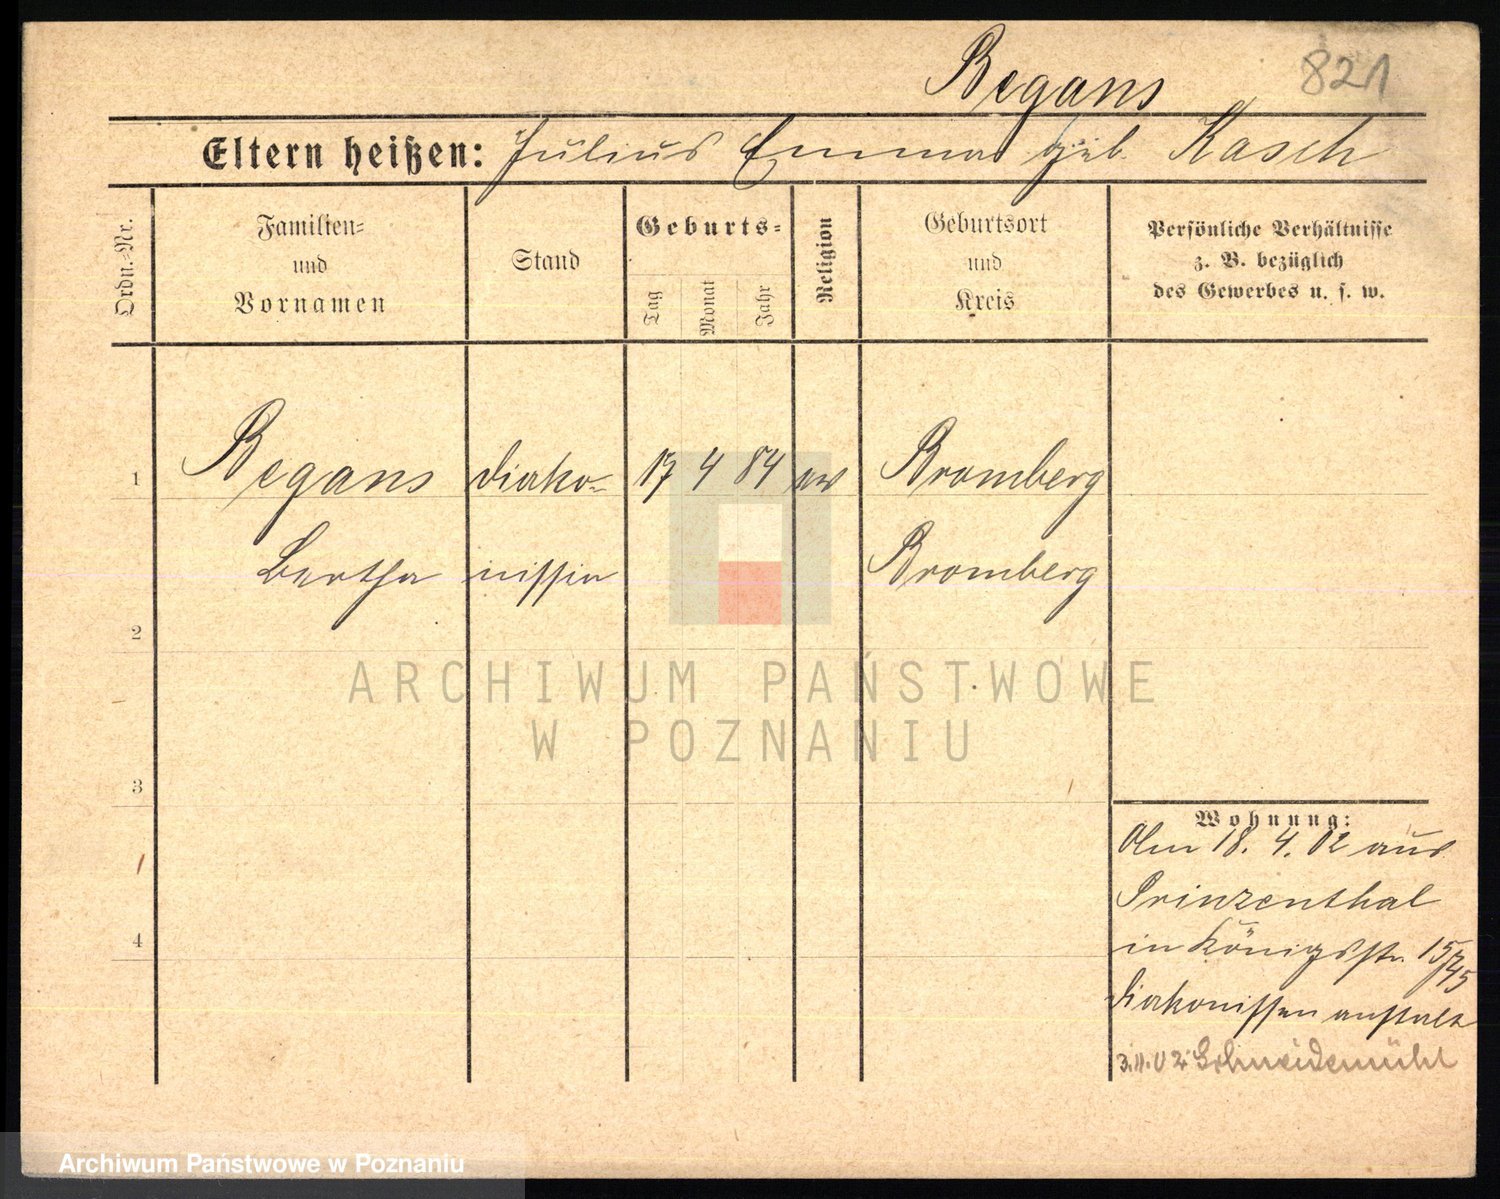 Begans 821
Eltern heißen: Julius Emma geb. Kasch
Ordn.-Nr.
Familien-
und
Vornamen
Stand
Geburts-
Tag
Monat
Jahr
Religion
Geburtsort
und
Kreis
Persönliche Verhältnisse
z. B. bezüglich
des Gewerbes u. s. w.
1 Begans Diako- 17 4 84 ev Bromberg
Bertha nissin Bromberg
2
ARCHIWUM PAŃSTWOWE
W POZNANIU
3
Wohnung:
Am 18. 4. 02 aus
Prinzenthal
4
in Königsstr. 15/
Diakonissenanstalt
3.11.02 Schneidemühl
Archiwum Państwowe w Poznaniu